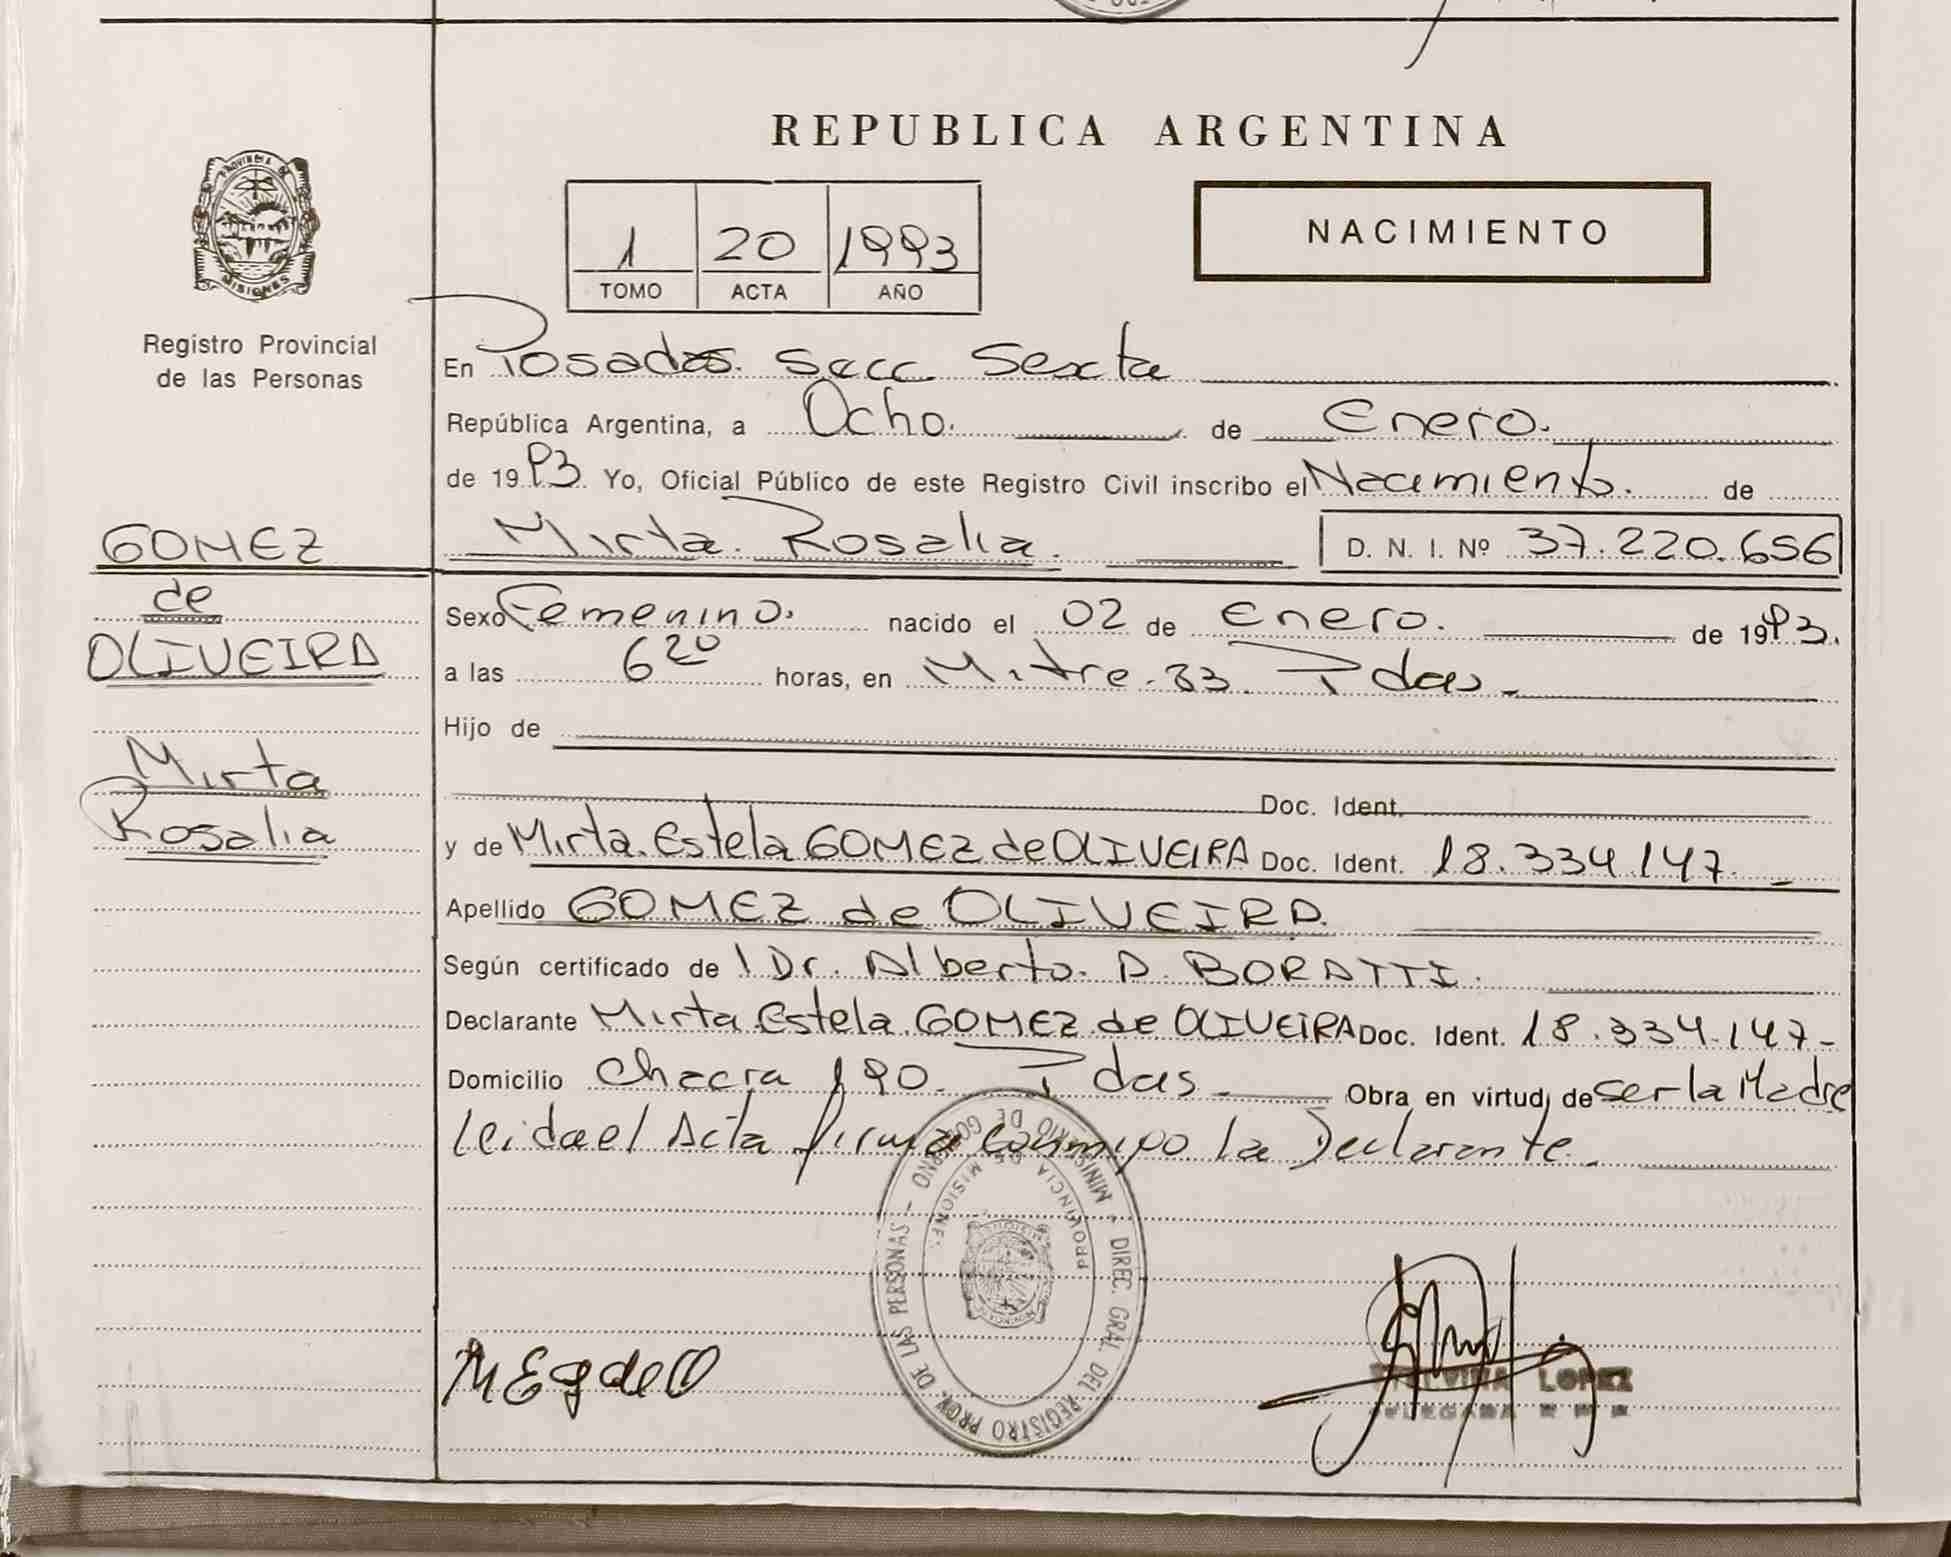 REPUBLICA ARGENTINA
PROVINCIA DE
MISIONES
1 20 1993
TOMO ACTA AÑO
NACIMIENTO
Registro Provincial
de las Personas
En Posadas. Secc. Sexta
República Argentina, a Ocho. de Enero.
de 1993. Yo, Oficial Público de este Registro Civil inscribo el Nacimiento. de
Mirta. Rosalia. D. N. I. Nº 37.220.656
GOMEZ
de
OLIVEIRA
Mirta
Rosalia
Sexo Femenino. nacido el 02 de Enero. de 1993.
a las 6 20 horas, en Mitre. 33. Pdas.
Hijo de
Doc. Ident.
y de Mirta. Estela GOMEZ de OLIVEIRA Doc. Ident. 18.334.147.
Apellido GOMEZ de OLIVEIRA.
Según certificado de l Dr. Alberto. A. BORATTI.
Declarante Mirta Estela GOMEZ de OLIVEIRA Doc. Ident. 18.334.147-
Domicilio Chacra 190. Pdas Obra en virtud de ser la Madre
Leida el Acta firma conmigo la Declarante.
MINISTERIO DE GOBIERNO - DIREC. GRAL. DEL REGISTRO PROV. DE LAS PERSONAS -
PROVINCIA DE MISIONES
MEGdeO
LOPEZ
DELEGADA